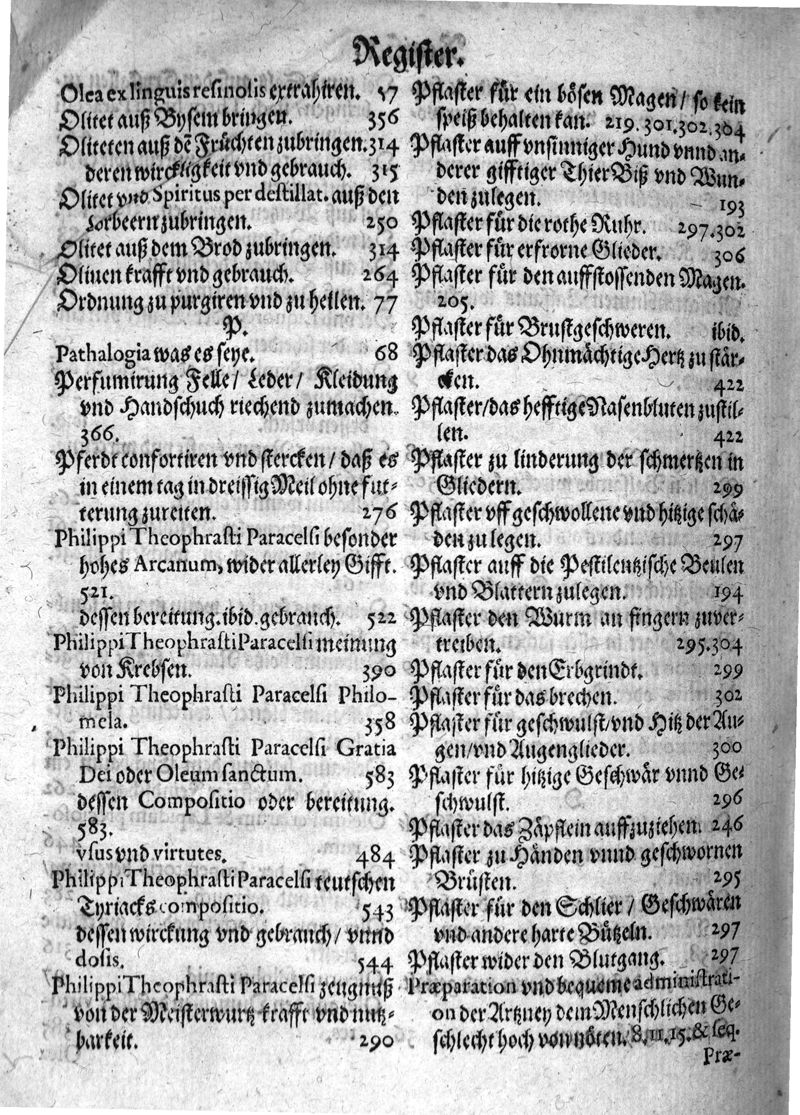 Register.
Olea ex linguis resinolis extrahiren. 57
Olitet auß Bysem bringen. 356
Oliteten auß dẽ Früchten zubringen. 314
deren wirckligkeit vnd gebrauch. 315
Olitet vnd Spiritus per destillat. auß den
Lorbeern zubringen. 250
Olitet auß dem Brod zubringen. 314
Oliuen krafft vnd gebrauch. 264
Ordnung zu purgiren vnd zu heilen. 77
P.
Pathalogia was es seye. 68
Perfumirung Felle/ Leder/ Kleidung
vnd Handschuch riechend zumachen.
366.
Pferdt confortiren vnd stercken/ daß es
in einem tag in dreissig Meil ohne fut-
terung zureiten. 276
Philippi Theophrasti Paracelsi besonder
hohes Arcanum, wider allerley Gifft.
521.
dessen bereitung. ibid. gebrauch. 522
Philippi Theophrasti Paracelsi meinung
von Krebsen. 390
Philippi Theophrasti Paracelsi Philo-
mela. 358
Philippi Theophrasti Paracelsi Gratia
Dei oder Oleum sanctum. 583
dessen Compositio oder bereitung.
583.
vsus vnd virtutes. 484
Philippi Theophrasti Paracelsi teutschen
Tyriacks compositio. 543
dessen wirckung vnd gebrauch/ vnnd
dosis. 544
Philippi Theophrasti Paracelsi zeugnuß
von der Meisterwurtz krafft vnd nutz-
barkeit. 290
Pflaster für ein bösen Magen/ so kein
speiß behalten kan. 219. 301. 302. 304
Pflaster auff vnsinniger Hund vnnd an-
derer gifftiger Thier Biß vnd Wun-
den zulegen. 193
Pflaster für die rothe Ruhr. 297. 302
Pflaster für erfrorne Glieder. 306
Pflaster für den auffstossenden Magen.
205.
Pflaster für Brustgeschweren. ibid.
Pflaster das Ohnmächtige Hertz zu stär-
cken. 422
Pflaster/ das hefftige Nasenbluten zustil-
len. 422
Pflaster zu linderung der schmertzen in
Gliedern. 299
Pflaster vff geschwollene vnd hitzige schä-
den zu legen. 297
Pflaster auff die Pestilentzische Beulen
vnd Blattern zulegen. 194
Pflaster den Wurm an fingern zuver-
treiben. 295. 304
Pflaster für den Erbgrindt. 299
Pflaster für das brechen. 302
Pflaster für geschwulst/ vnd Hitz der Au-
gen/ vnd Augenglieder. 300
Pflaster für hitzige Geschwär vnnd Ge-
schwulst. 296
Pflaster das Zäpflein auffzuziehen. 246
Pflaster zu Händen vnnd geschwornen
Brüsten. 295
Pflaster für den Schlier/ Geschwären
vnd andere harte Bützeln. 297
Pflaster wider den Blutgang. 297
Præparation vnd bequeme administrati-
on der Artzney dem Menschlichen Ge-
schlecht hoch von nöten. 8. 11. 15. & seq.
Præ-